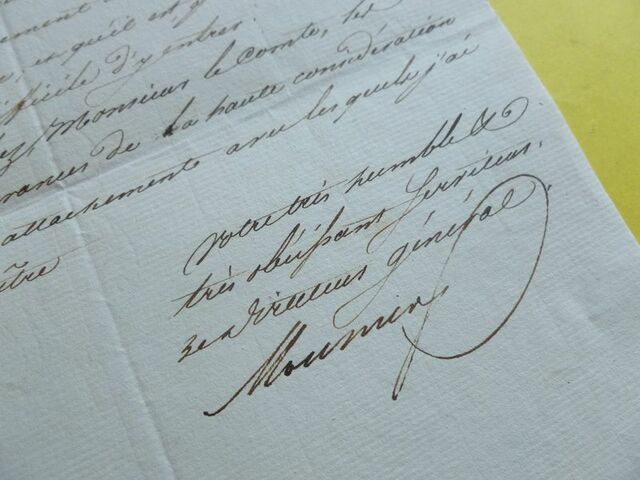 et qu'il est,
difficile d'y entrer
Monsieur le Comte, les
rances de la haute considération
attachements avec lesquels j'ai
être
votre très humble &
très obéissant Serviteur.
Directeur général
Mounier